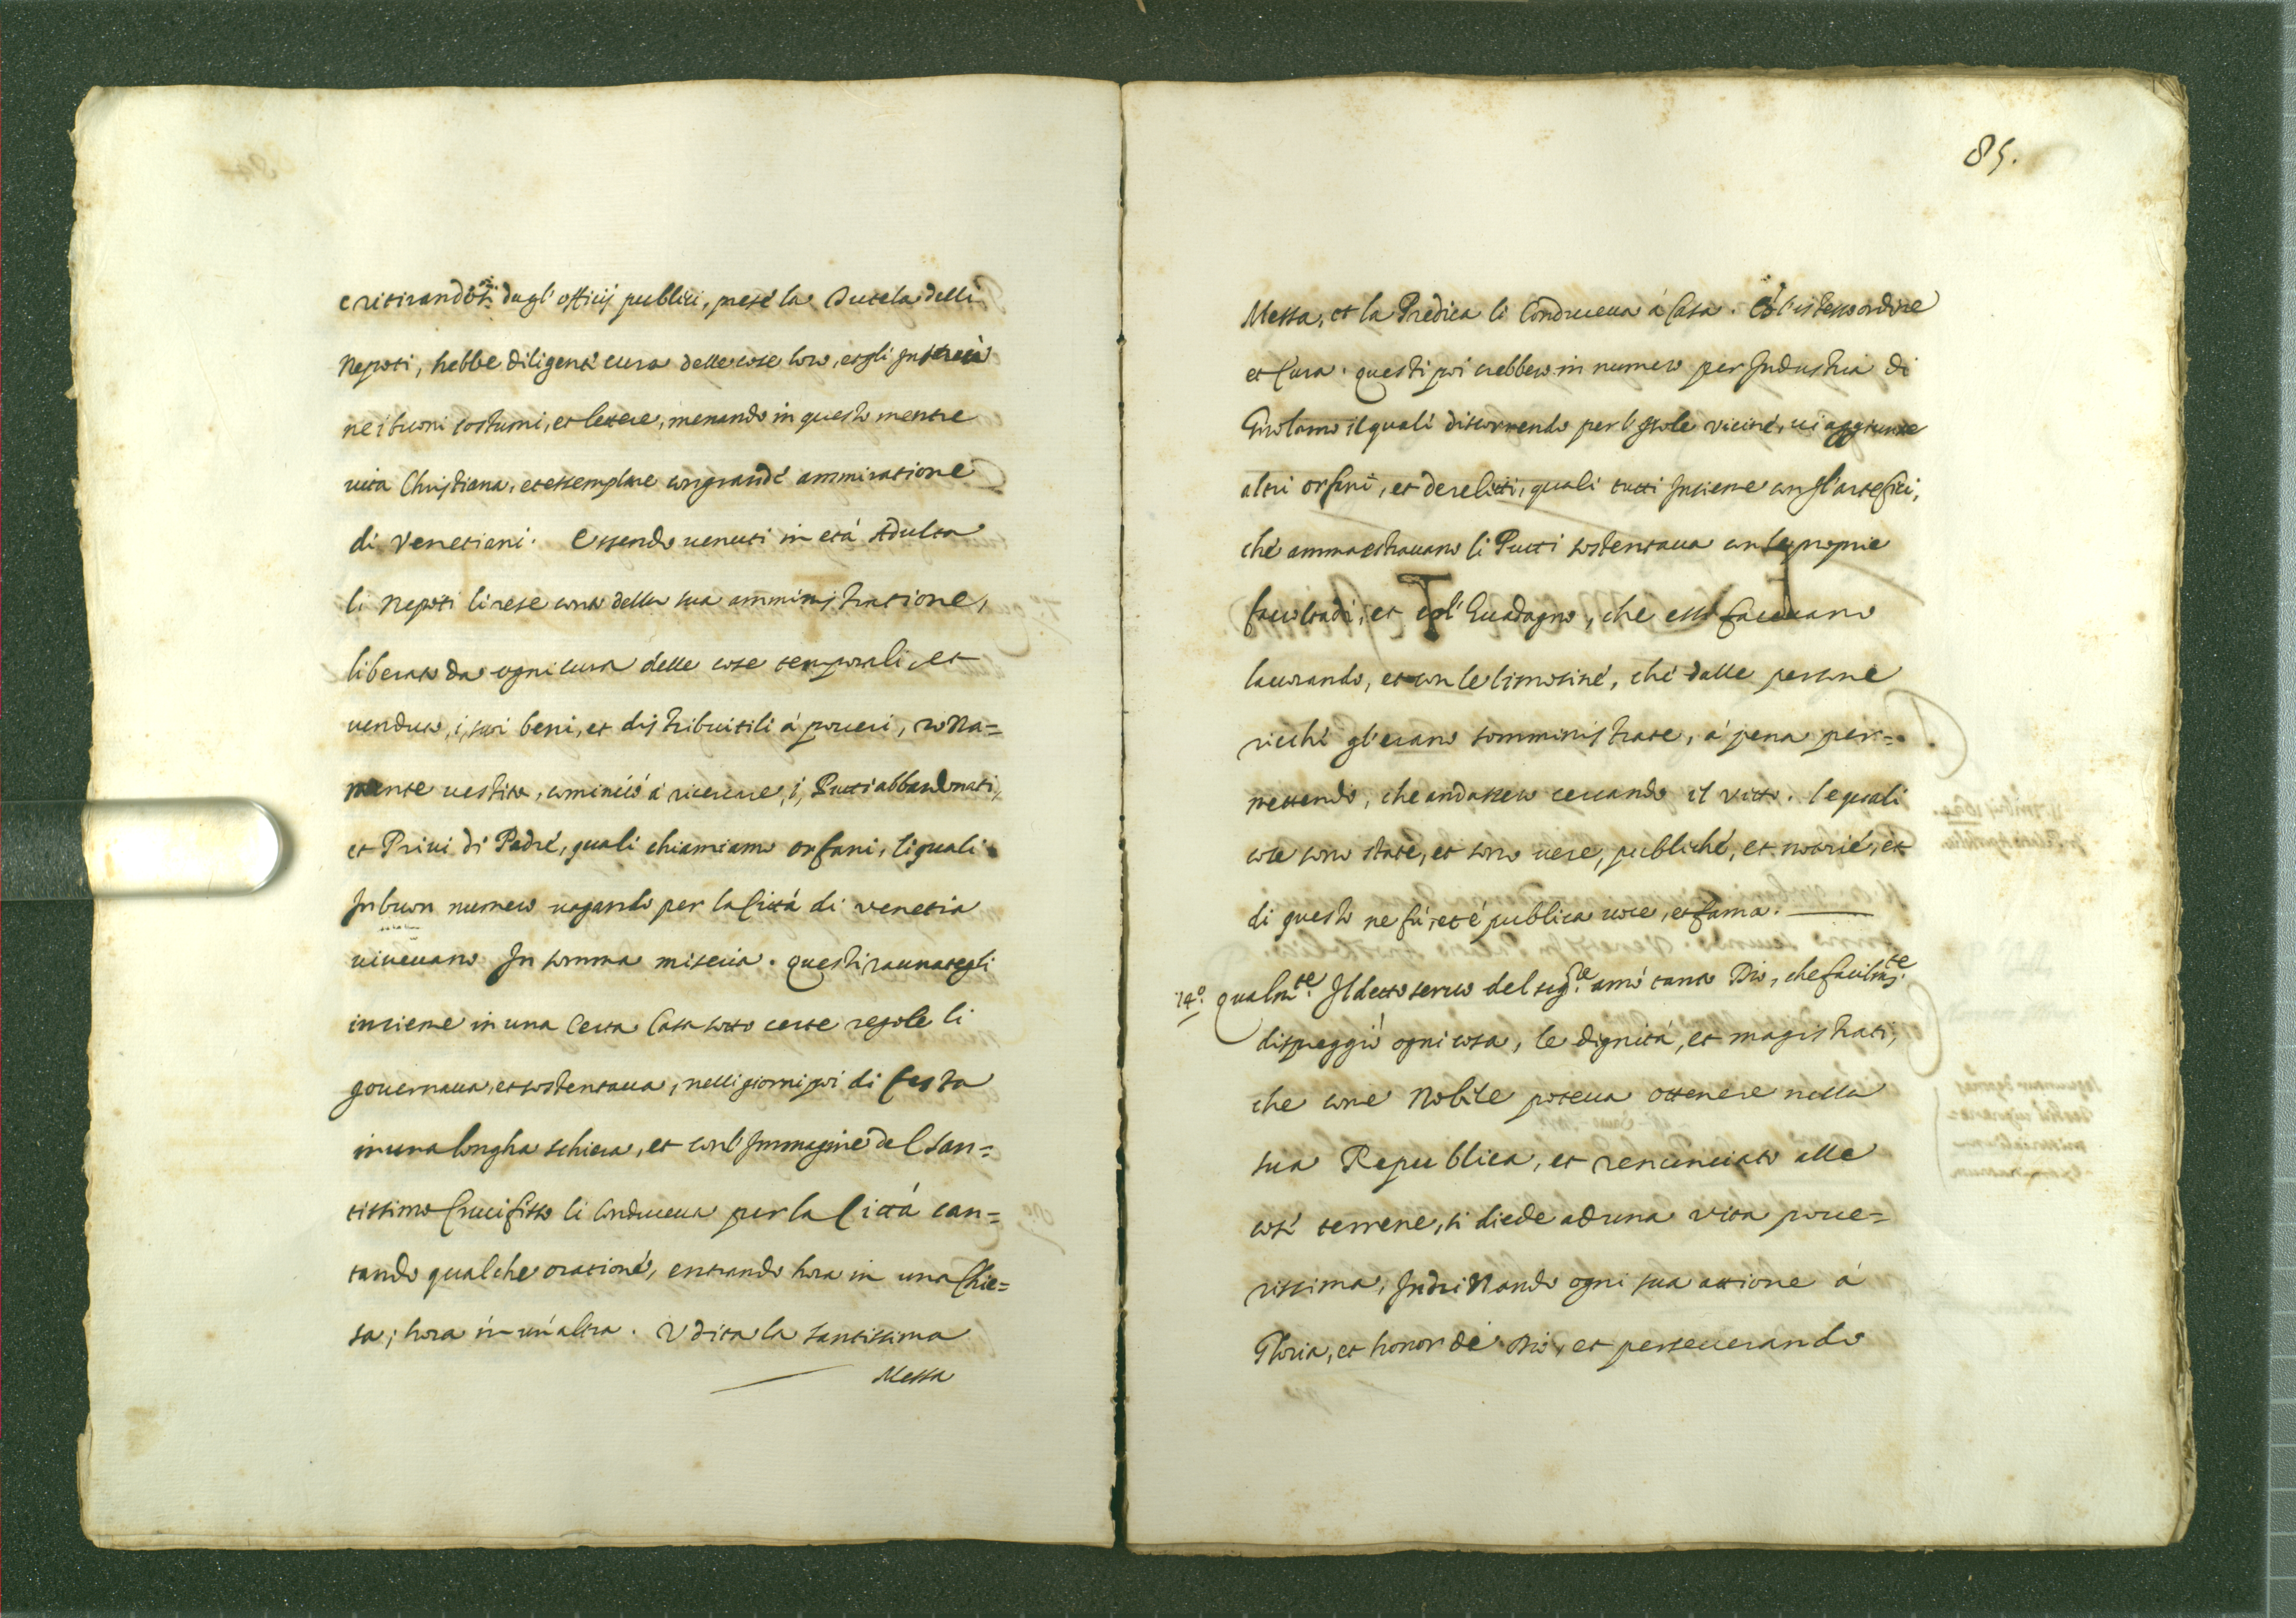 e ritirandosi dagl'officij publici, prese la Tutela delli
Nepoti, hebbe diligente cura delle cose loro, et gli Instrui
ne i buoni costumi, et lettere, menando in questo mentre
vita Christiana, et essemplare con grande ammiratione
di Venetiani. Essendo uenuti in età Adulta
li Nepoti li rese conto della sua amministratione,
liberato da ogni cura delle cose temporali, et
uenduto, i, suoi beni, et distribuitili à poueri, roZZa=
mente uestito, cominciò à ricercare, i, Putti abbandonati,
et Priui di Padre, quali chiamiamo orfani, li quali
In buon numero uagando per la Città di Venetia
uiueuano In somma miseria. questi raunategli
insieme in una Certa Casa sotto certe regole li
gouernaua, et sostentaua, nelli giorni poi di festa
in una longha schiera, et con l'Immagine del San=
tissimo Crucifisso li Conduceua per la Città can=
tando qualche oratione, entrando hora in una Chie=
sa, hora in un'altra. Vdita la santissima
Messa
85.
Messa, et la Predica li Conduceua à Casa. Cō l'istesso ordine
et Cura. questi poi crebbero in numero per Industria di
Girolamo il quale discorrendo per l'Isole vicine, ui aggiunse
altri orfani, et derelitti, quali tutti Insieme con gl'artefici,
che ammaestrauano li Putti sostentaua con le proprie
facoltadi, et col Guadagno, che essi faceuano
lauorando, et con le limosine, che dalle persone
ricche gl'erano somministrate, à pena per=
mettendo, che andassero cercando il vitto. le quali
cose sono state, et sono uere, publiche, et notorie, et
di questo ne fù, et è publica uoce, et fama.
14º. qualmte. Il detto seruo del sigre. amò tanto Dio, che facilmte.
dispreggiò ogni cosa, le dignità, et magistrati,
che come Nobile poteua ottenere nella
sua Republica, et renunciato alle
cose terrene, si diede ad una vita poue=
rissima, IndriZZando ogni sua attione à
Gloria, et honor de Dio, et perseuerando